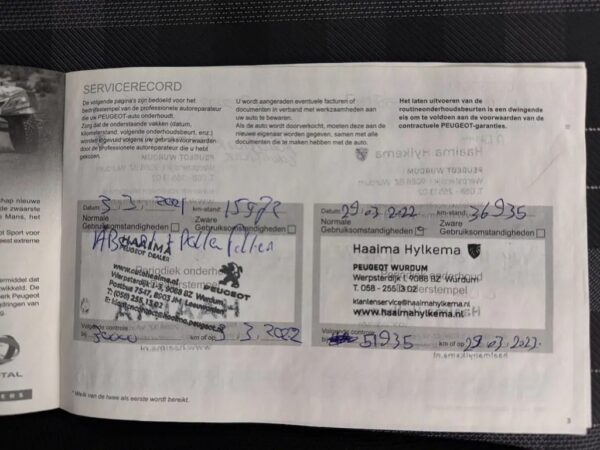 SERVICERECORD
De volgende pagina's zijn bedoeld voor het
bedrijfsstempel van de professionele autoreparateur
die uw PEUGEOT-auto onderhoudt.
Zorg dat de onderstaande vakken (datum,
kilometerstand, volgende onderhoudsbeurt, enz.)
worden ingevuld volgens uw gebruiksvoorwaarden
door de professionele autoreparateur die u hebt
gekozen.
U wordt aangeraden eventuele facturen of
documenten in verband met werkzaamheden aan
uw auto te bewaren.
Als de auto wordt doorverkocht, moeten deze aan de
nieuwe eigenaar worden gegeven, samen met alle
documenten die te maken hebben met de auto.
Het laten uitvoeren van de
routineonderhoudsbeurten is een dwingende
eis om te voldoen aan de voorwaarden van de
contractuele PEUGEOT-garanties.
Datum 3 3. 2021 15972
Normale Zware
Gebruiksomstandigheden Gebruiksomstandigheden
HAAIMA
PEUGEOT DEALER
Werpsterdijk 1-3, 9088 BZ Wurdum
Postbus 8503 JM Leeuwarden
T: (058) 255 13 02
PEUGEOT
Volgende controle
bij 36000 km of op 3. 2022
Datum 29. 03. 2022 km-stand: 36935
Normale Zware
Gebruiksomstandigheden Gebruiksomstandigheden
Haaima Hylkema
PEUGEOT WURDUM
Werpsterdijk 1, 9088 BZ Wurdum
T. 058 - 255 13 02
klantenservice@haaimahylkema.nl
www.haaimahylkema.nl
Volgende controle
51935 km of op 29. 03. 2023.
* Welk van de twee als eerste wordt bereikt.
3
chap nieuwe
de zwaarste
e Mans, het
ot Sport voor
eel extreme
ermiddel dat
wikkeld. De
erk Peugeot
dringen van
TAL